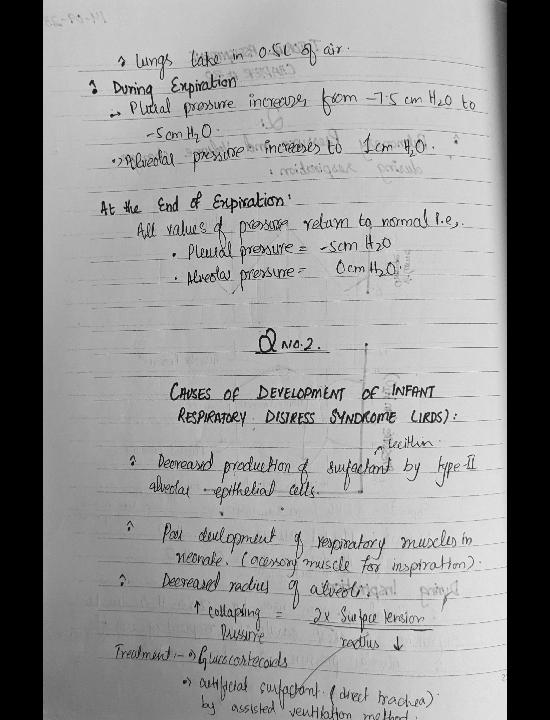 → lungs take in 0.5L of air.
: During Expiration
→ Plural pressure increases from -7.5 cm H2O to
-5cm H2O.
→ Alveolar pressure increases to 1cm H2O.
At the End of Expiration:
All values of pressure return to normal i.e,.
• Pleural pressure = -5cm H2O
• Alveolar pressure = 0cm H2O.
Q NO.2.
CAUSES OF DEVELOPMENT OF INFANT
RESPIRATORY DISTRESS SYNDROME (IRDS):
→ lecithin.
: Decreased production of surfactant by type-II
alveolar epithelial cells.
: Poor development of respiratory muscles in
neonate. (accessory muscle for inspiration).
: Decreased radius of alveoli.
↑ collapsing = 2x Surface tension
Pressure radius ↓
Treatment:- → Glucocorticoids
→ artificial surfactant (direct trachea)
by assisted ventilation method.